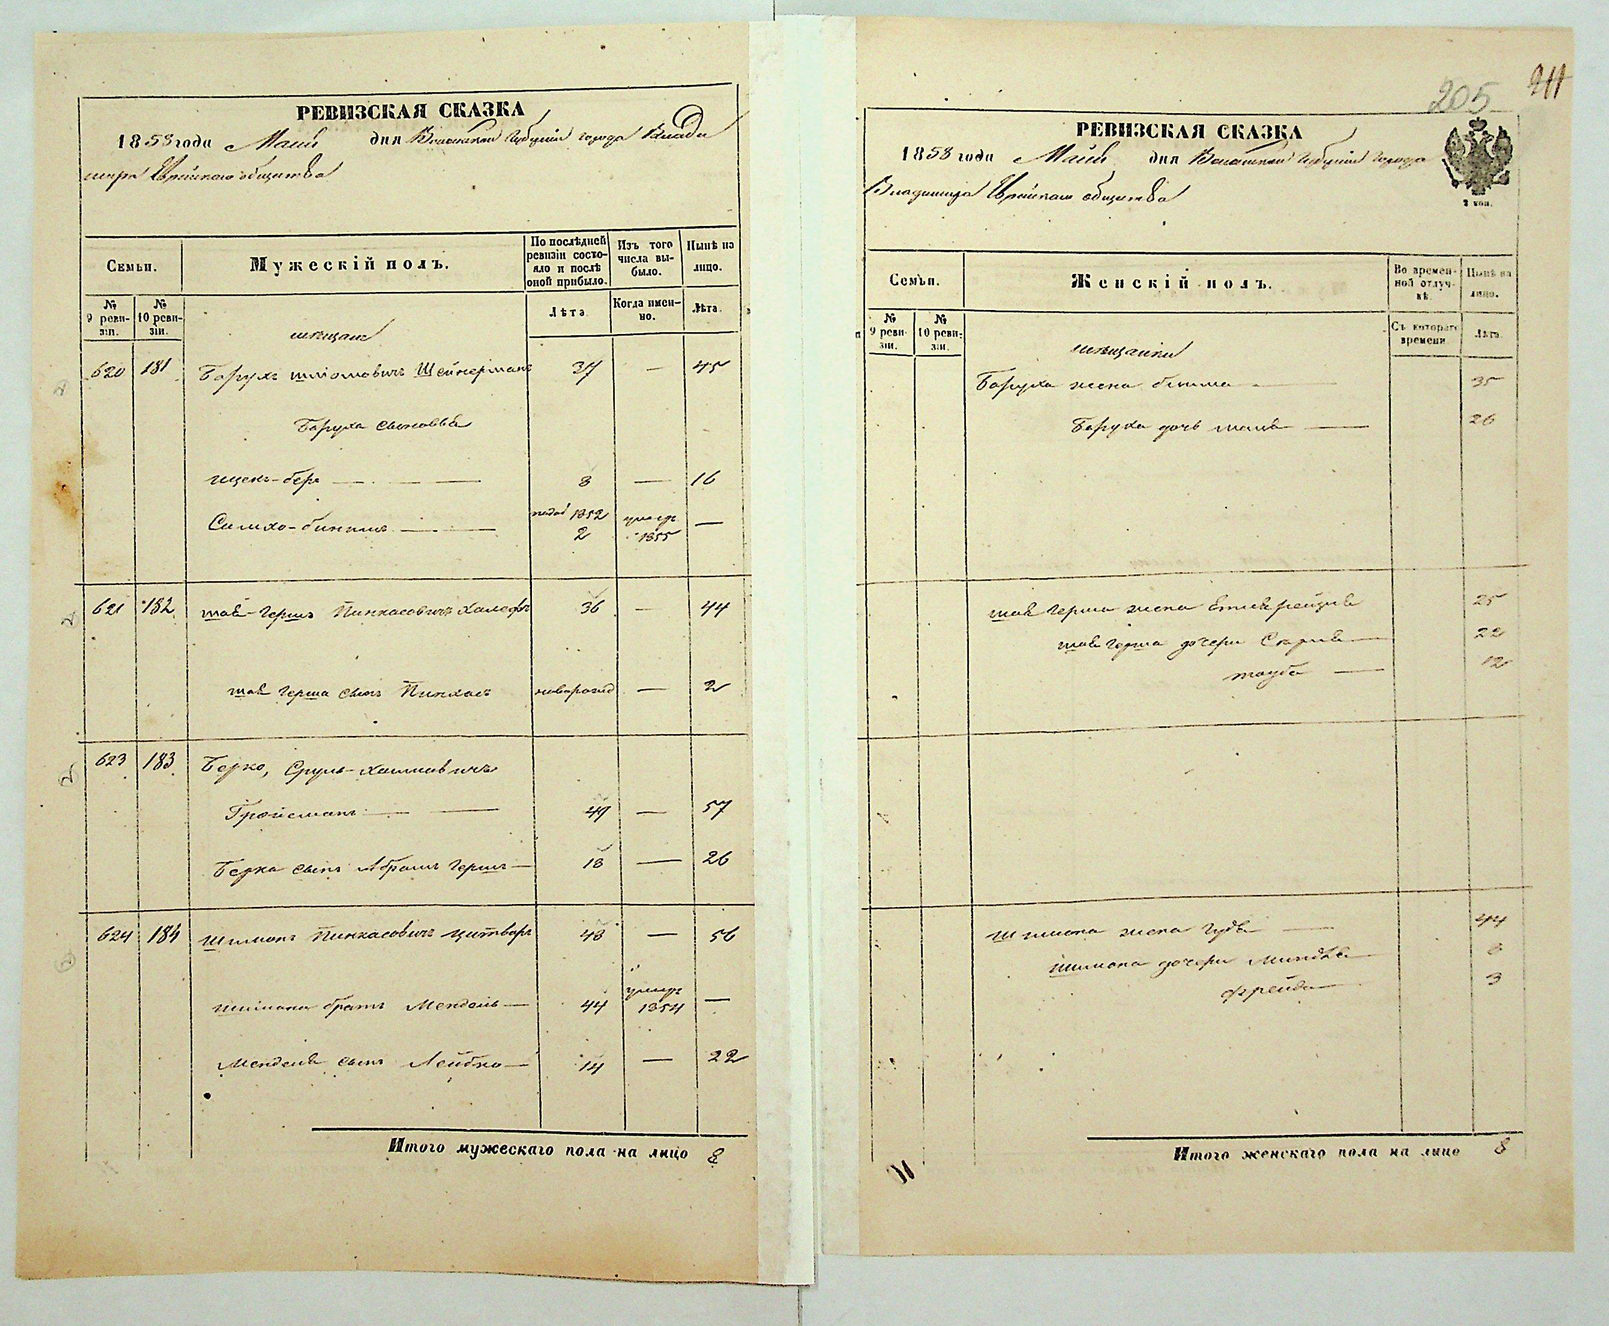 РЕВИЗСКАЯ СКАЗКА
1858 года Маія дня Волынской Губерніи города Влади
міра Еврейскаго общества
Семьи.
Мужескій полъ.
По послѣдней ревизіи состояло и послѣ оной прибыло.
Изъ того числа выбыло.
Нынѣ на лицо.
№ 9 ревизіи.
№ 10 ревизіи.
Лѣта
Когда именно.
Лѣта.
мѣщане
620 181 Барухъ Шліомовичъ Шейнерманъ 37 — 45
Баруха сыновья
Ицекъ-Беръ — 8 — 16
Симхо- 1852 2 умеръ 1855 —
621 182 Шая-Гершъ Пинхасовичъ 36 — 44
Шая Герша сынъ Пинхасъ новорожд — 2
623 183 Берко, Сруль-Хаимовичъ
Гройсманъ — 49 — 57
Берка сынъ Абрамъ Гершъ — 18 — 26
624 184 Шимонъ Пинхасовичъ 48 — 56
Шимона братъ Мендель — 44 умеръ 1854 —
Менделя сынъ Лейбко — 14 — 22
Итого мужескаго пола на лицо 8
205
РЕВИЗСКАЯ СКАЗКА
1858 года Маія дня Волынской Губерніи города
Владиміра Еврейскаго общества
2 коп.
Семьи.
Женскій полъ.
Во временной отлучкѣ.
Нынѣ на лицо.
№ 9 ревизіи.
№ 10 ревизіи.
Съ котораго времени
Лѣта.
мѣщанки
Баруха жена 35
Баруха дочь — 26
Шая Герша жена 25
Шая Герша дочери — 22
Тауба — 12
Шимона жена — 44
Шимона дочери Миндля
Фрейда — 3
Итого женскаго пола на лицо 8